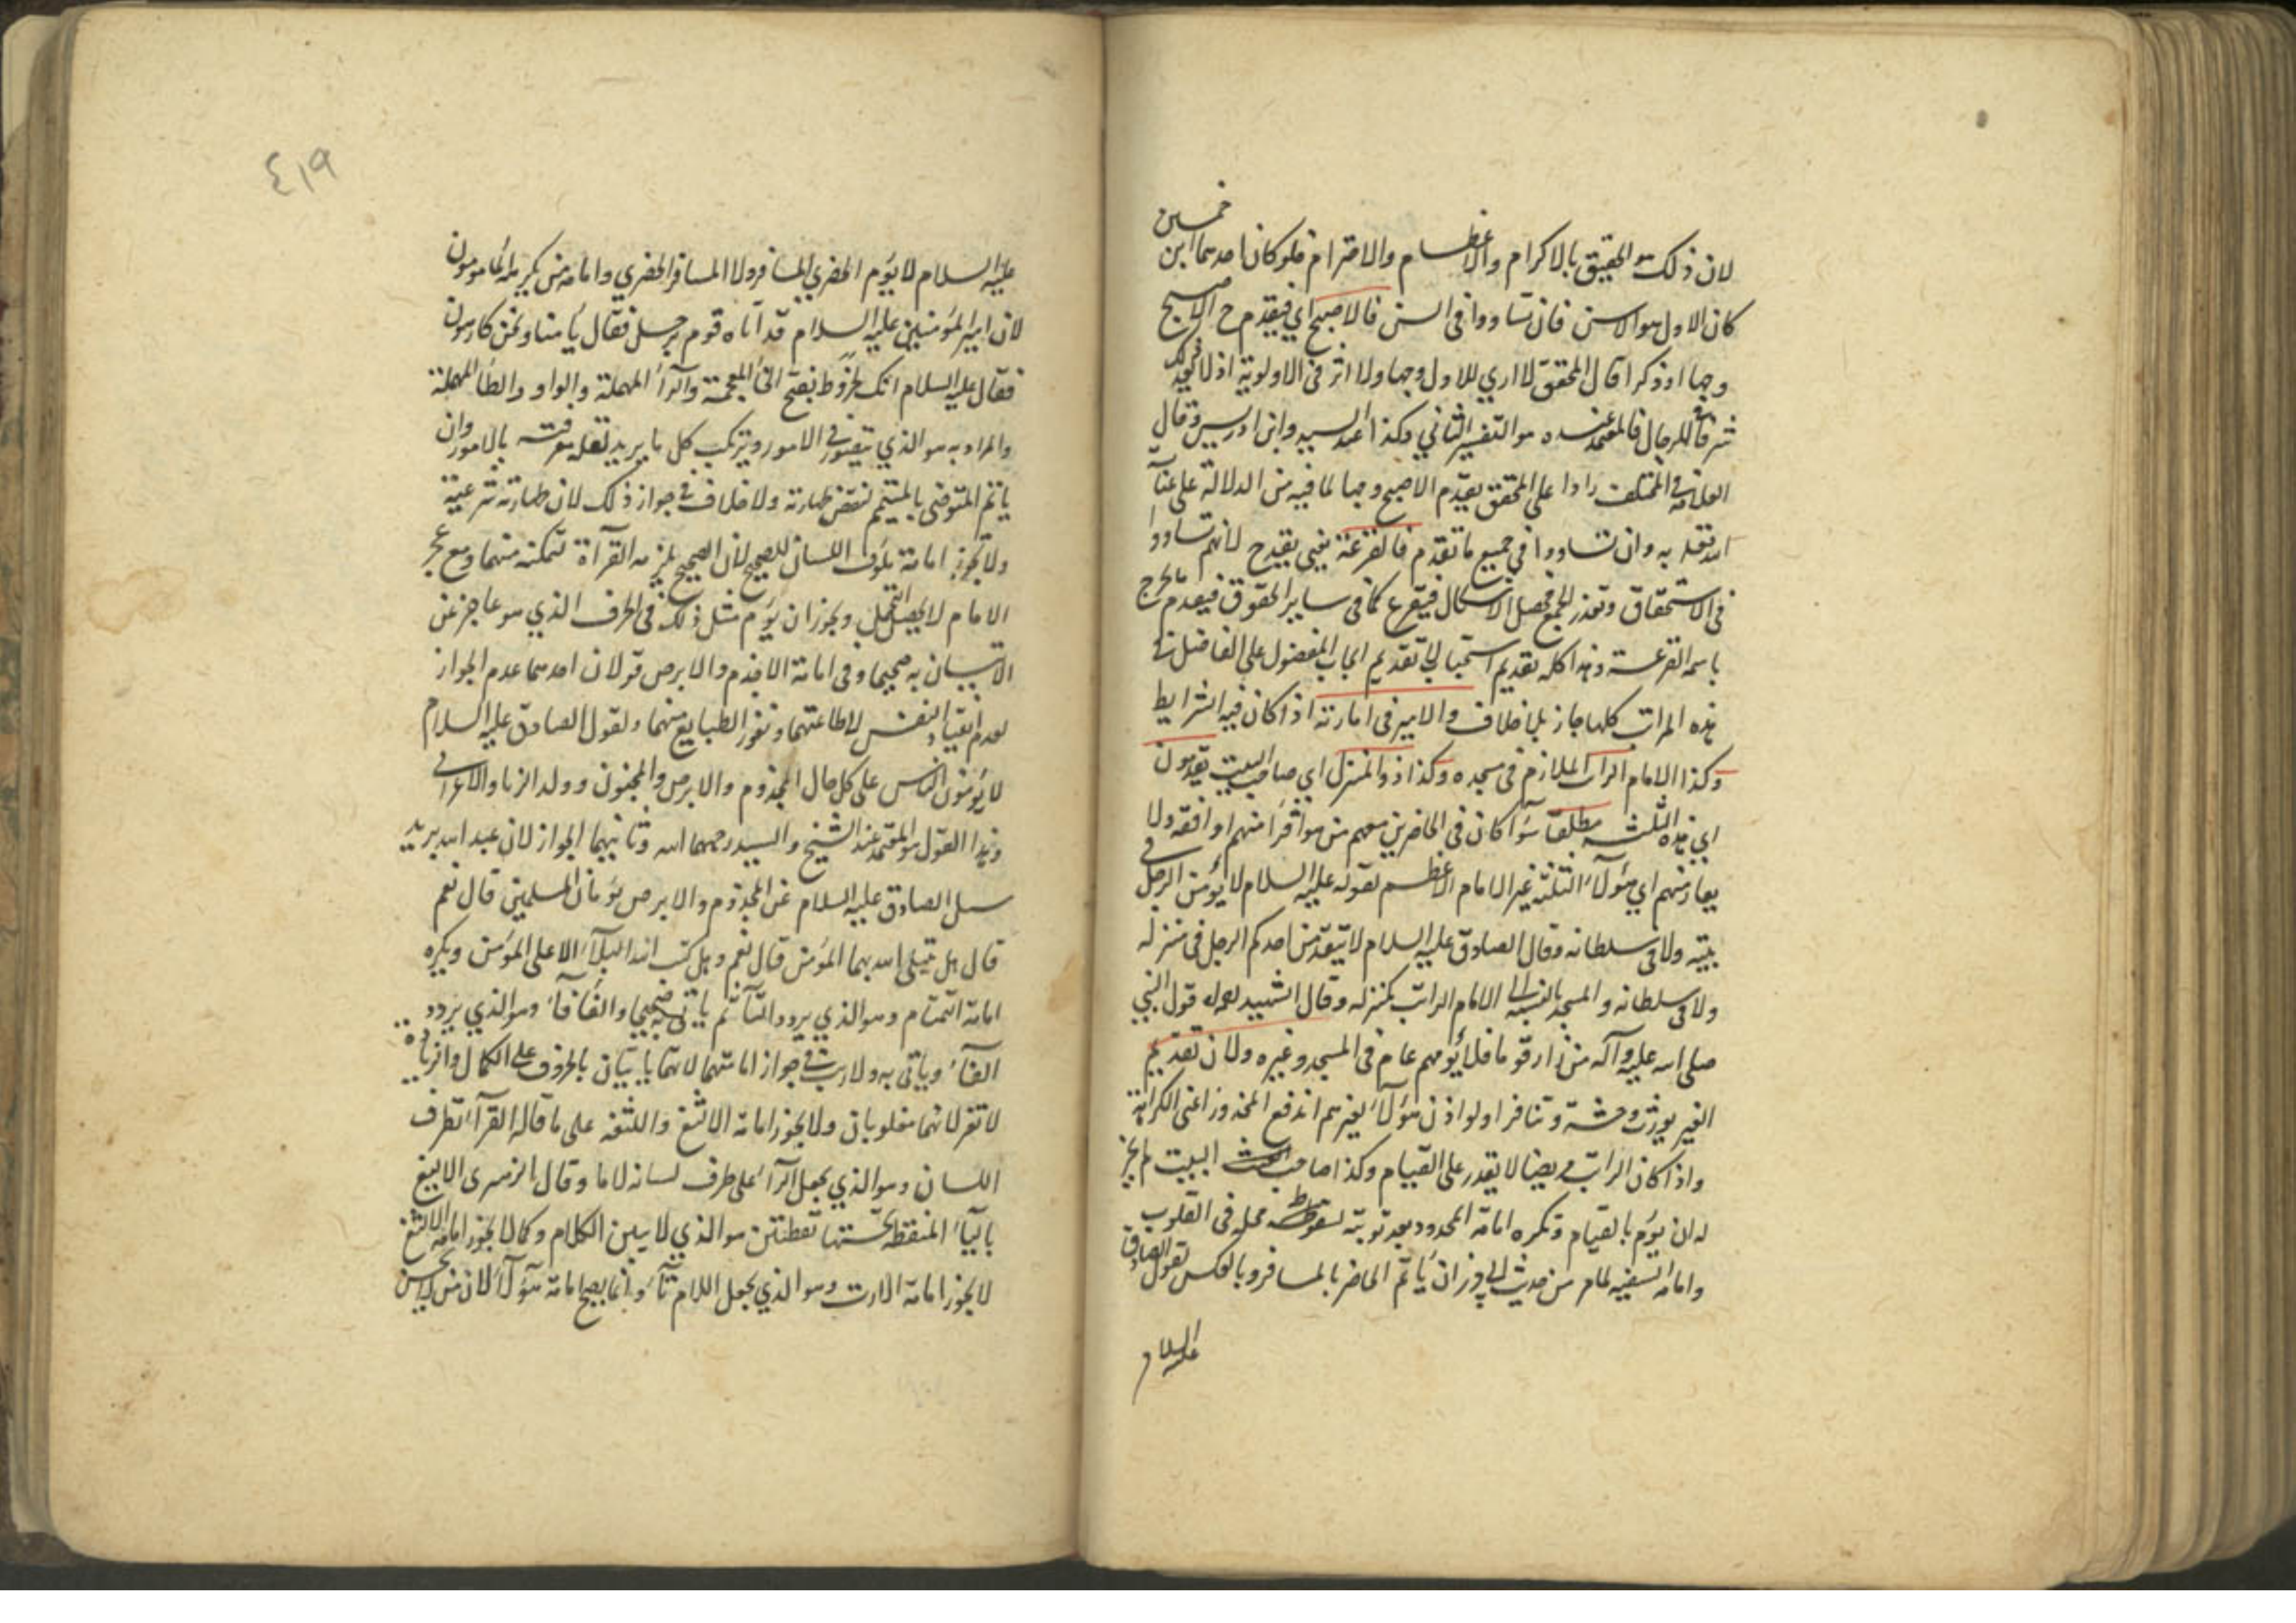 لان ذلك هو الحقيق بالاكرام والاعظام والاحترام فلو كانا احدهما ابن خمسين
كان الاول هو الاسن فان تساووا فى السن فالاصبح اي فيقدم ح الاصبح
وجها او ذكرا قال المحقق لا اري للاول وجها ولا اثر فى الاولوية اذ لا
شرفا للرجال فالمعتمد عنده هو التفسير الثاني وكذا عند السيد وابن ادريس وقال
العلامة فى المختلف رادا على المحقق يقدم الاصبح وجها لما فيه من الدلالة على عناية
الله تعالى به وان تساووا فى جميع ما تقدم فالقرعة يعني يقدم ح لانهم تساووا
فى الاستحقاق وتعذر الجمع فحصل الاشكال فيقرع كما فى ساير الحقوق فيقدم ما يخرج
باسمه القرعة وهذا كله تقديم استحباب لا تقديم ايجاب المفضول على الفاضل فى
هذه المراتب كلها جاز بلا خلاف والامير فى امارته اذا كان فيه الشرايط
وكذا الامام الراتب الملازم فى مسجده وكذا ذو المنزل اي صاحب البيت يقدمون
اي هذه الثلثة مطلقا سوآ كان فى الحاضرين معهم من هو اقرا منهم او افقه ولا
يعارضهم اي هؤلآء الثلثة غير الامام الاعظم لقوله عليه السلام لا يؤمن الرجل فى
بيته ولا فى سلطانه وقال الصادق عليه السلام لا يتقدمن احدكم الرجل فى منزله
ولا فى سلطانه والمسجد بالنسبة الى الامام الراتب كمنزله وقال الشهيد لعله قول النبي
صلى الله عليه وآله من زار قوما فلا يؤمهم عام فى المسجد وغيره ولان تقديم
الغير يورث وحشة وتنافرا ولو اذن هؤلآء لغيرهم اندفع المحذور اعني الكراهة
واذا كان الراتب مريضا لا يقدر على القيام وكذا صاحب البيت لم يجز
له ان يؤم بالقيام وتكره امامة المحدود بعد توبته لسقوط محله فى القلوب
وامامة السفيه لما مر من حديث ابي ذر ان يأتم الحاضر بالمسافر وبالعكس لقول الصادق
عليه السلام
٤١٩
عليه السلام لا يؤم الحضري المسافر ولا المسافر الحضري وامامة من يكرهه المأمومون
لان امير المؤمنين عليه السلام قد اتاه قوم برجل فقال يأمنا ونحن كارهون
فقال عليه السلام انك لخروط بفتح الخآء المعجمة والرآء المهملة والواو والطآء المهملة
والمراد به هو الذي يتهور فى الامور ويركب كل ما يريد لقلة معرفته بالامور وان
ياتم المتوضى بالمتيمم لنقص طهارته ولا خلاف فى جواز ذلك لان طهارته شرعية
ولا تجوز امامة مأوف اللسان للصحيح لان الصحيح يلزمه القرآءة لتمكنه منها ومع عجز
الامام لا يحصل التحمل ويجوز ان يؤم مثل ذلك فى الحرف الذي هو عاجز عن
الاتيان به صحيحا وفى امامة الاجذم والابرص قولان احدهما عدم الجواز
لعدم انقياد النفس لاطاعتهما وتنفر الطبايع منهما ولقول الصادق عليه السلام
لا يؤمون الناس على كل حال المجذوم والابرص والمجنون وولد الزنا والاعرابي
وهذا القول هو المعتمد عند الشيخ والسيد رحمهما الله وثانيهما الجواز لان عبد الله بن يزيد
سئل الصادق عليه السلام عن المجذوم والابرص يؤمان المسلمين قال نعم
قال هل يبتلى الله بهما المؤمن قال نعم وهل كتب الله البلآء الا على المؤمن ويكره
امامة التمتام وهو الذي يردد التآء ثم ياتى به صحيحا والفأفآء وهو الذي يردد
الفآء وياتى به ولا ريب فى جواز امامتهما لانهما ياتيان بالحروف على الكمال والزيادة
لا تضر لانهما مغلوبان ولا يجوز امامة الالثغ واللثغة على ما قاله القرآء بطرف
اللسان وهو الذي يجعل الرآء على طرف لسانه لاما وقال الازهرى الاليغ
باليآء المنقطة تحتها نقطتين هو الذي لا يبين الكلام وكما لا يجوز امامة الالثغ
لا يجوز امامة الارت وهو الذي يجعل اللام تآء وانما يصح امامة هؤلآء لان من لا يحسن